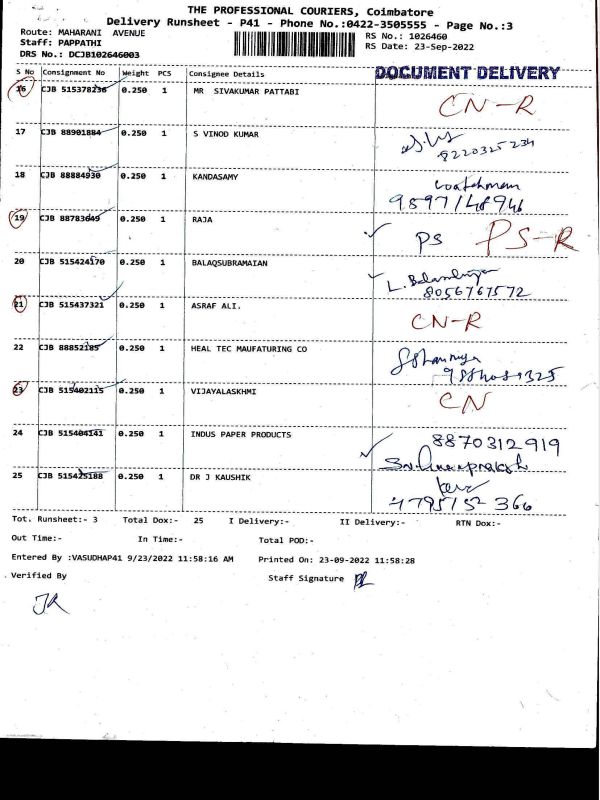 THE PROFESSIONAL COURIERS, Coimbatore
Delivery Runsheet - P41 - Phone No.:0422-3505555 - Page No.:3
Route: MAHARANI AVENUE
RS No.: 1026460
Staff: PAPPATHI
RS Date: 23-Sep-2022
DRS No.: DCJB102646003
S No Consignment No Weight PCS Consignee Details DOCUMENT DELIVERY
16 CJB 515378236 0.250 1 MR SIVAKUMAR PATTABI CN-R
17 CJB 88901884 0.250 1 S VINOD KUMAR
8220325234
18 CJB 88884930 0.250 1 KANDASAMY watchman
19 CJB 88783649 0.250 1 RAJA PS PS-R
20 CJB 515424170 0.250 1 BALAQSUBRAMAIAN
8056767572
21 CJB 515437321 0.250 1 ASRAF ALI. CN-R
22 CJB 88852185 0.250 1 HEAL TEC MAUFATURING CO
23 CJB 515402115 0.250 1 VIJAYALASKHMI CN
24 CJB 515404141 0.250 1 INDUS PAPER PRODUCTS 8870312919
25 CJB 515425188 0.250 1 DR J KAUSHIK
Tot. Runsheet:- 3 Total Dox:- 25 I Delivery:- II Delivery:- RTN Dox:-
Out Time:- In Time:- Total POD:-
Entered By :VASUDHAP41 9/23/2022 11:58:16 AM Printed On: 23-09-2022 11:58:28
Verified By Staff Signature